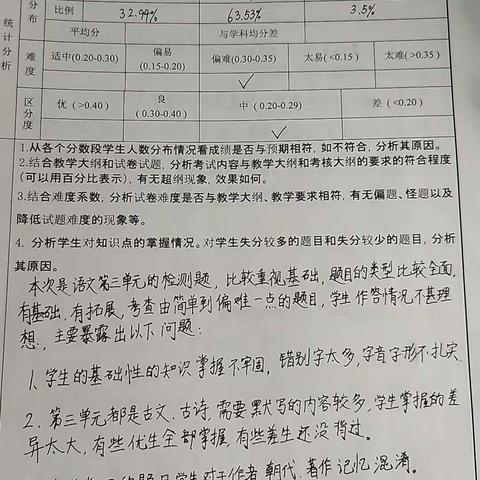 分布 比例 32.94% 63.53% 3.5%
统计分析
平均分 与学科均分差
难度 适中(0.20-0.30) 偏易(0.15-0.20) 偏难(0.30-0.35) 太易(<0.15) 太难(>0.35)
√
区分度 优(>0.40) 良(0.30-0.40) 中(0.20-0.29) 差(<0.20)
√
1.从各个分数段学生人数分布情况看成绩是否与预期相符，如不符合，分析其原因。
2.结合教学大纲和试卷试题，分析考试内容与教学大纲和考核大纲的要求的符合程度
（可以用百分比表示），有无超纲现象，效果如何。
3.结合难度系数，分析试卷难度是否与教学大纲、教学要求相符，有无偏题、怪题以及
降低试题难度的现象等。
4. 分析学生对知识点的掌握情况。对学生失分较多的题目和失分较少的题目，分析
其原因。
本次是语文第三单元的检测题，比较重视基础，题目的类型比较全面，
有基础，有拓展，考查由简单到偏难一点的题目，学生作答情况不甚理
想，主要暴露出以下问题：
1、学生的基础性的知识掌握不牢固，错别字太多，字音字形不扎实
2、第三单元都是古文、古诗，需要默写的内容较多，学生掌握的差
异太大，有些优生全部掌握，有些差生还没背过。
学生对于作者、朝代、著作记忆混淆。